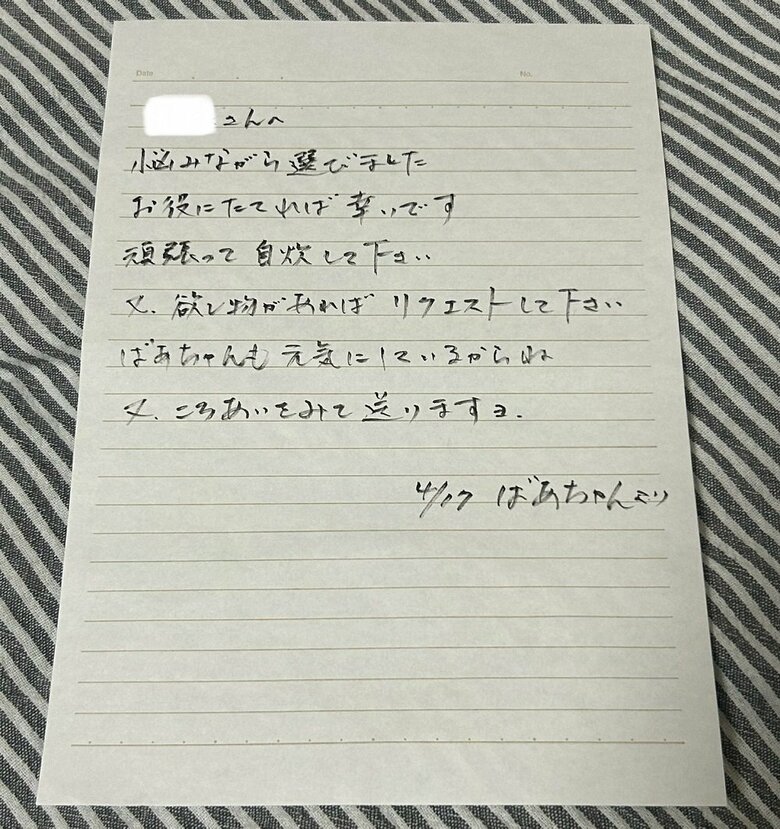 Date No.
さんへ
悩みながら選びました
お役にたてれば幸いです
頑張って自炊して下さい
又、欲し物があれば リクエストして下さい
ばあちゃんも元気にしているからね
又、ころあいをみて送りますヨ.
4/17 ばあちゃんより